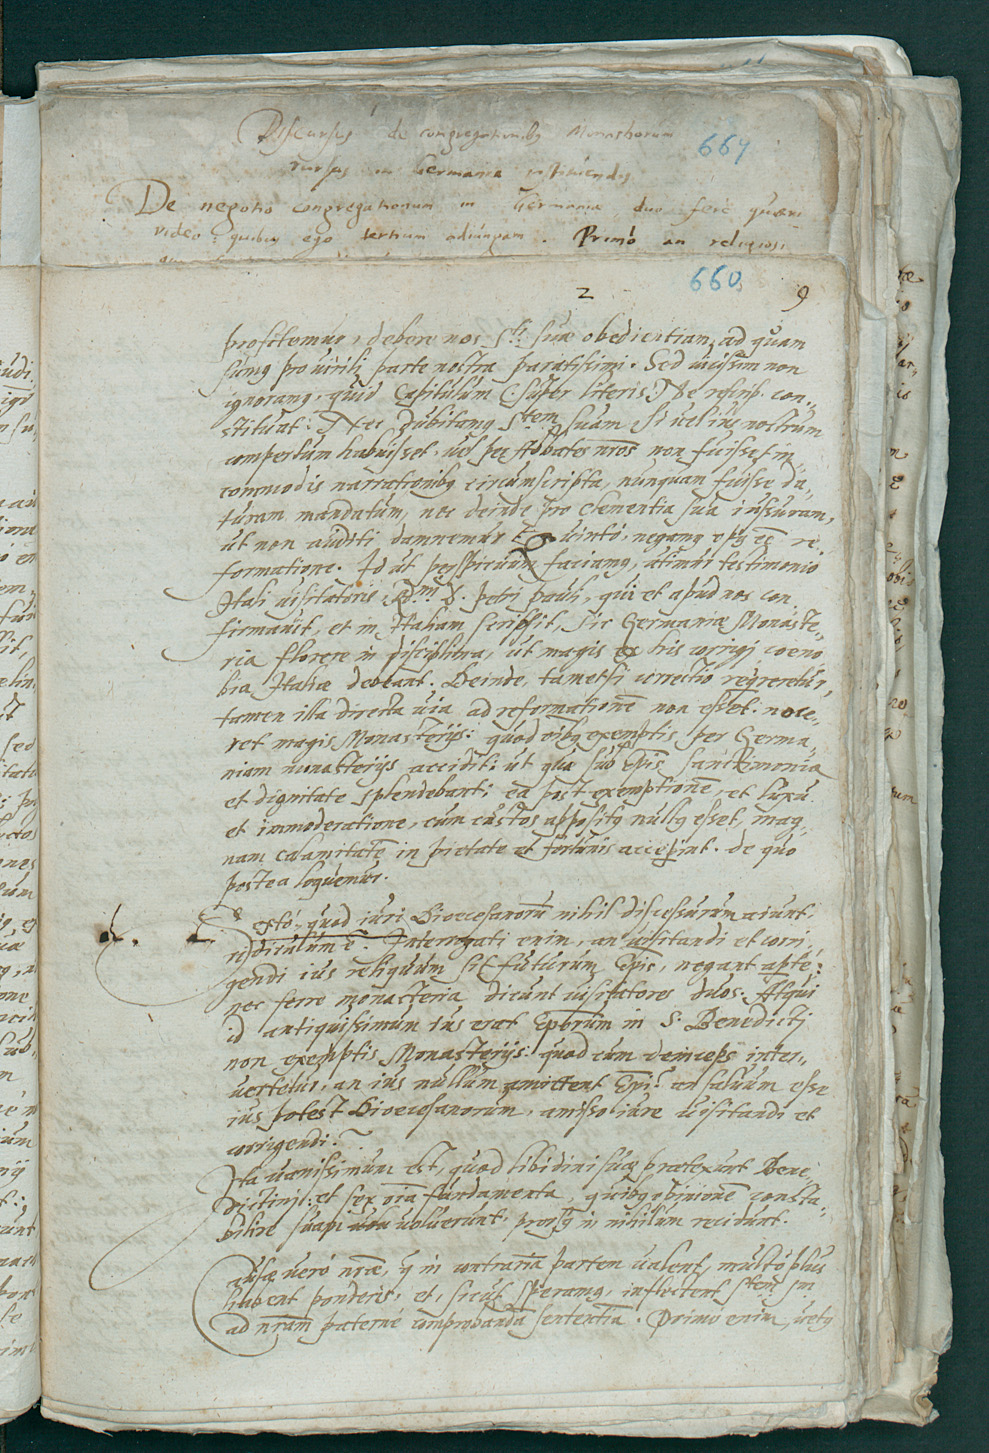 Discursus de congregationibꝫ Monachorum
667
rursus in Germania instituendis
De negotio congregationum in Germania duo fere quæri
video: quibus ego tertium adiungam. Primò an religiosi
660
2 9
profitemur, debere nos S.ti suæ obedientiam, ad quam
sumꝰ pro virili parte nostra paratissimi. Sed vicissim non
ignoramꝰ, quid Capitulum C. super literis De rescrip. con-
stituat. Nec dubitamꝰ S.tem suam si vel ius nostrum
compertum habuisset, vel per Abbates nros non fuisset in
commodis narrationibꝫ circumscripta, nunquam fuisse da-
turam mandatum, nec deinde pro clementia sua iussuram,
ut non auditi damnemur. Quintò, negamꝰ opꝰ eē re-
formatione. Id ut perspicuum faciamꝰ, utimur testimonio
Itali visitatoris, Rdmi D. Petri Pauli, qui et apud nos con-
firmavit, et in Italiam scripsit, sic Germaniæ Monaste-
ria florere in disciplina, ut magis ex his corrigi coeno
bia Italiæ debeant. Deinde, tametsi correctio reqreretur,
tamen illa directa via ad reformationē non esset. noce-
ret magis Monasterijs: quod oībꝫ exemptis per Germa-
niam monasterijs accidit: ut quæ sub Epis sanctimonia
et dignitate splendebant; ea post exemptionē, et luxu
et immoderatione, cum custos appositꝰ nullꝰ esset, mag-
nam calamitatē in pietate et fortunis acceperint. de quo
postea loquemur.
Sextò, quod iuri Dioecesanorū nihil discessurum aiunt.
ridiculum ē. Interrogati enim, an visitandi et corri-
gendi ius reliquum sit futurum Epis, negant aptè:
nec ferre monasteria dicunt visitatores duos. Atqui
id antiquissimum ius erat Epōrum in S. Benedicti
non exemptis Monasterijs: quod cum deinceps inter-
vertetur, an ius nullum amittent Epi? an salvum esse
ius potest Dioecesanorum, amisso iure visitandi et
corrigendi?
Ita vanissimum est, quod libidini suæ prætexunt Bene-
dictini: et sex oīa fundamenta, quibꝰ opinionē consta-
bilire suam voluerunt, prorsꝰ in nihilum recidunt.
Causæ verò nræ, q in contrariā partem valent, multò plus
habent ponderis, et, sicut speramꝰ, inflectent S.tem sm
ad nram paternè comprobandā sententiā. Primò enim, vetꝰ